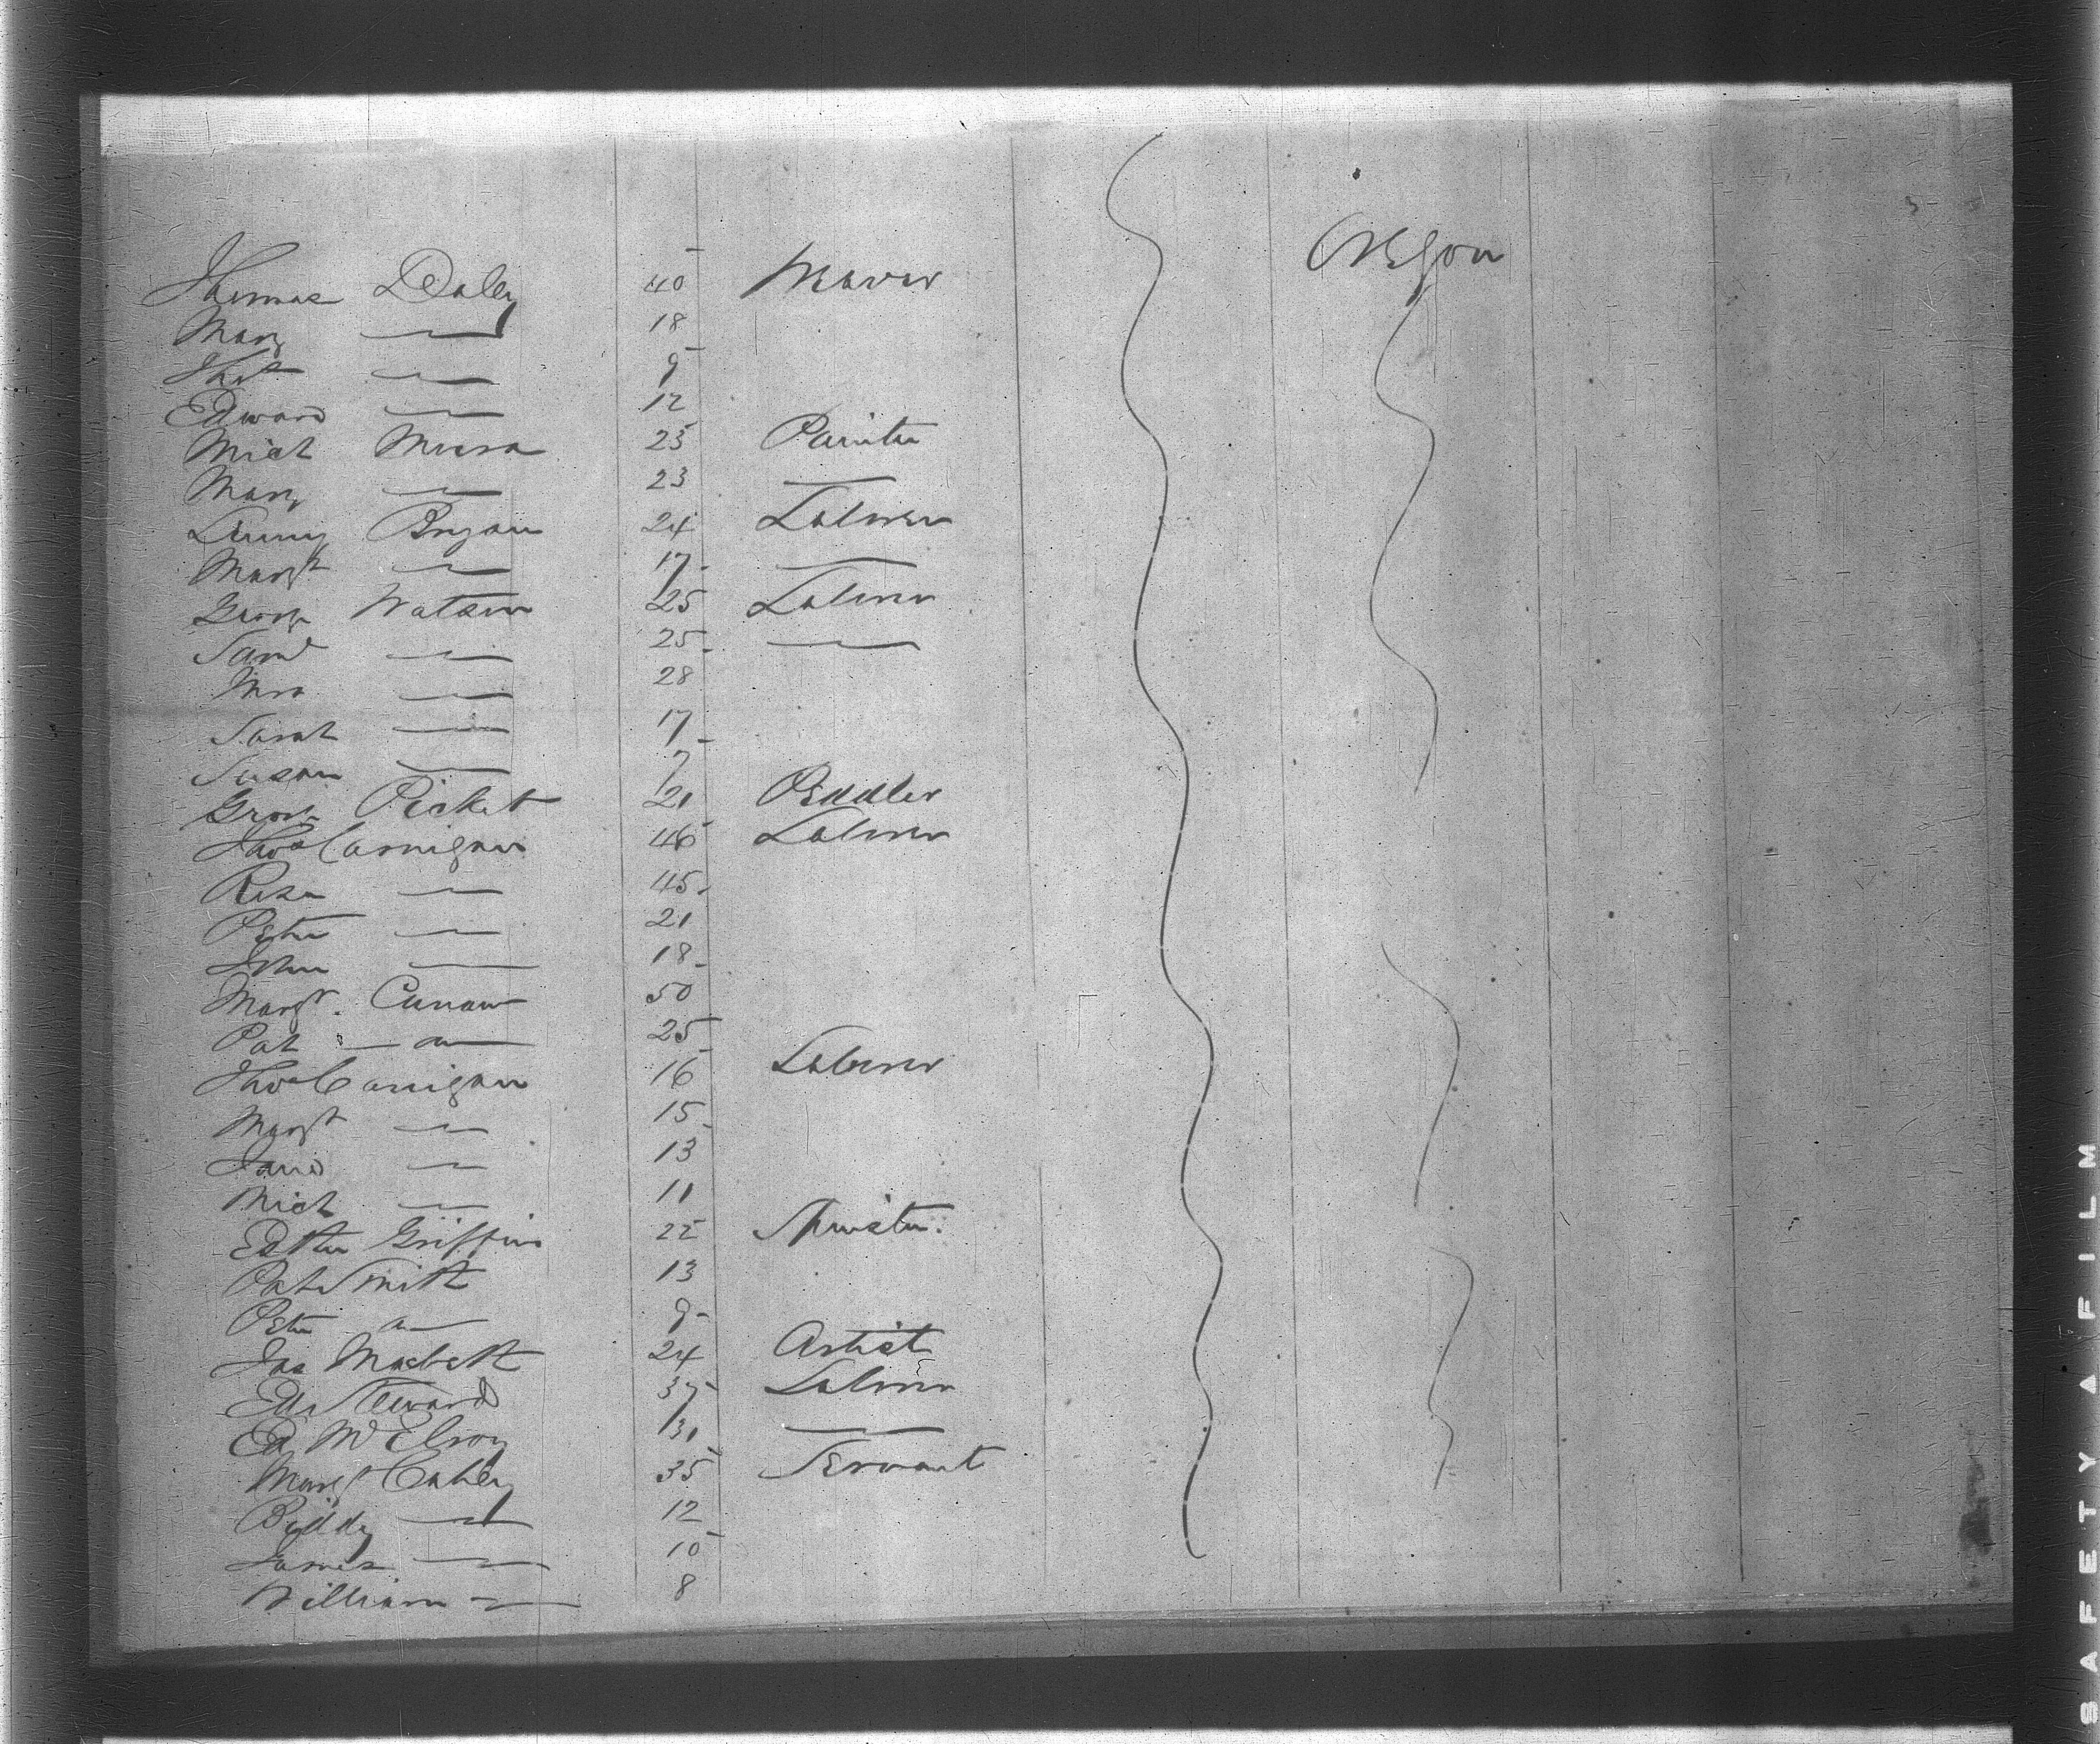 Oregon
Thomas Daley 40 Weaver
Mary — 18
Thos — 9
Edward — 12
Mich 25 Painter
Mary — 23 —
Bryan 24 Laborer
Margt — 17 —
George Watson 25 Laborer
Saml — 25 —
Mrs — 28
Sarah — 17
Susan — 7
George Picket 21 Peddler
Thos Carrigan 46 Laborer
Rosa — 45
Peter — 21
John — 18
Margt. 50
Pat — 25
Thos Carrigan 16 Laborer
Margt — 15
— 13
Mich — 11
Esther Griffin 22 Spinster
Pat Smith 13
Peter — 9
Jas Macbeth 24 Artist
Ed Steward 37 Laborer
Ed McElroy 31 —
Margt Cahley 35 Servant
Biddy — 12
James — 10
William — 8
SAFETY A FILM